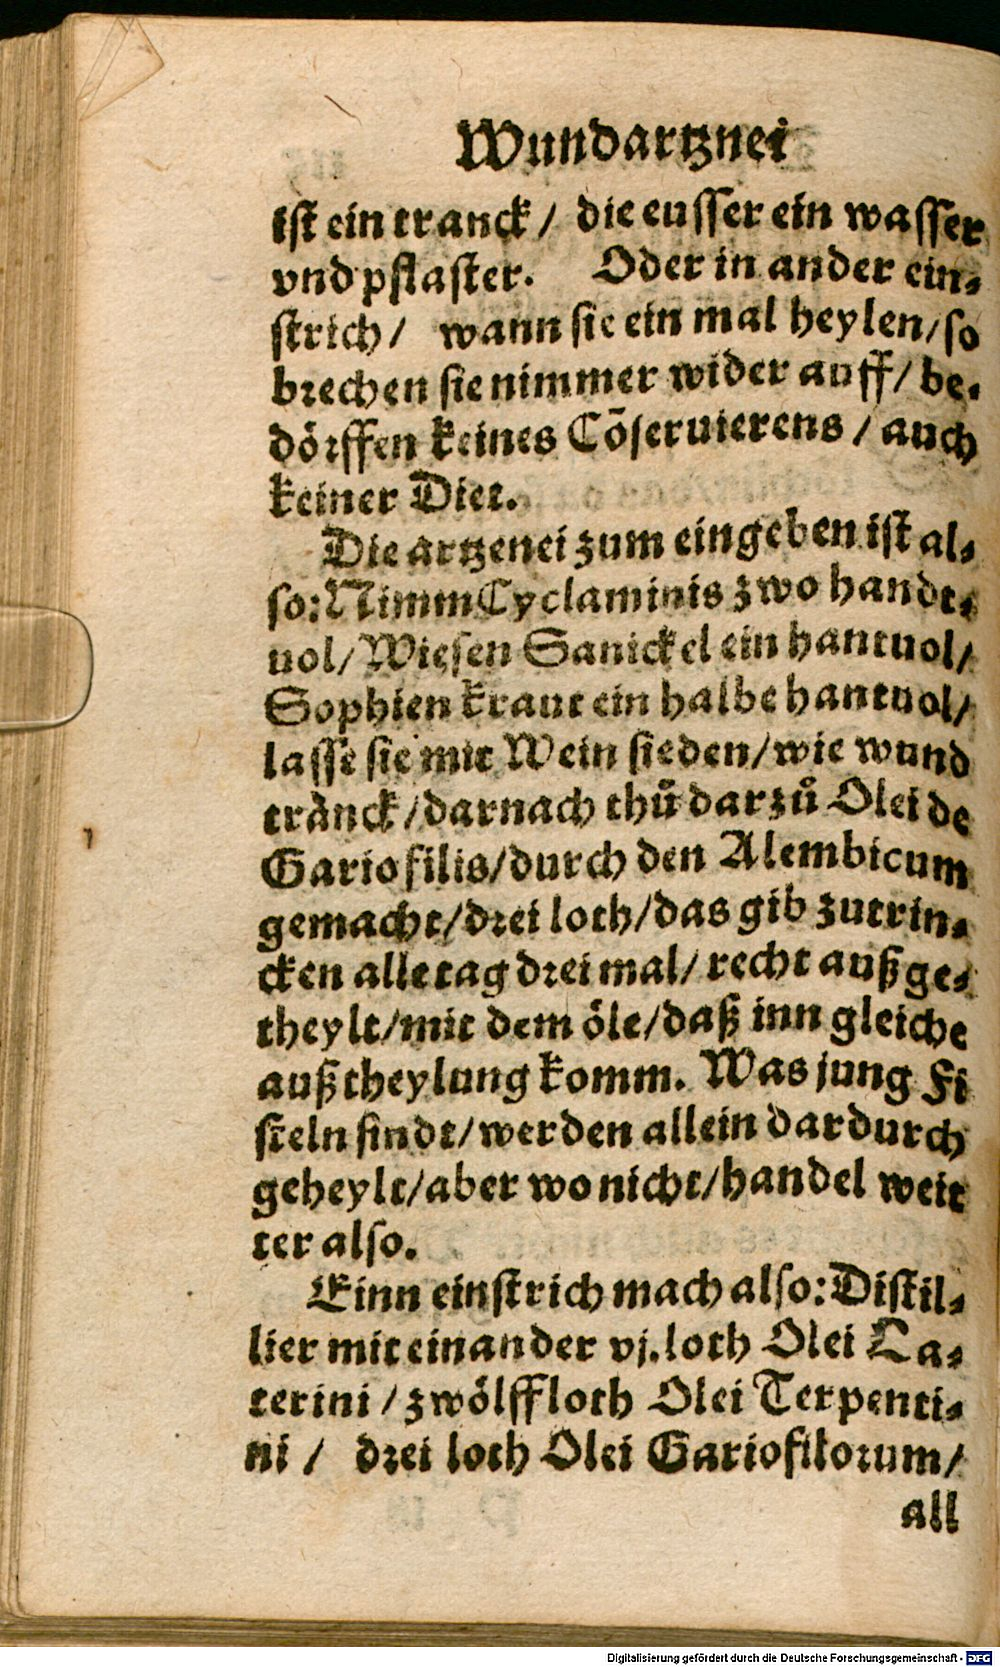 Wundartznei
ist ein tranck / die eusser ein wasser
vnd pflaster. Oder in ander ein⸗
strich / wann sie ein mal heylen / so
brechen sie nimmer wider auff / be⸗
dörffen keines Cõseruierens / auch
keiner Diet.
Die artzenei zum eingeben ist al⸗
so: Nimm Cyclaminis zwo handt⸗
uol / Wiesen Sanickel ein hantuol /
Sophien kraut ein halbe hantuol /
lasse sie mit Wein sieden / wie wund
tränck / darnach thů darzů Olei de
Gariofilis / durch den Alembicum
gemacht / drei loth / das gib zutrin⸗
cken alle tag drei mal / recht außge⸗
theylt / mit dem öle / daß inn gleiche
außtheylung komm. Was jung Fi
steln sindt / werden allein dardurch
geheylt / aber wo nicht / handel weit
ter also.
Einn einstrich mach also: Distil⸗
lier mit einander vj. loth Olei La⸗
terini / zwölff loth Olei Terpenti⸗
ni / drei loth Olei Gariofilorum /
all
Digitalisierung gefördert durch die Deutsche Forschungsgemeinschaft - DFG